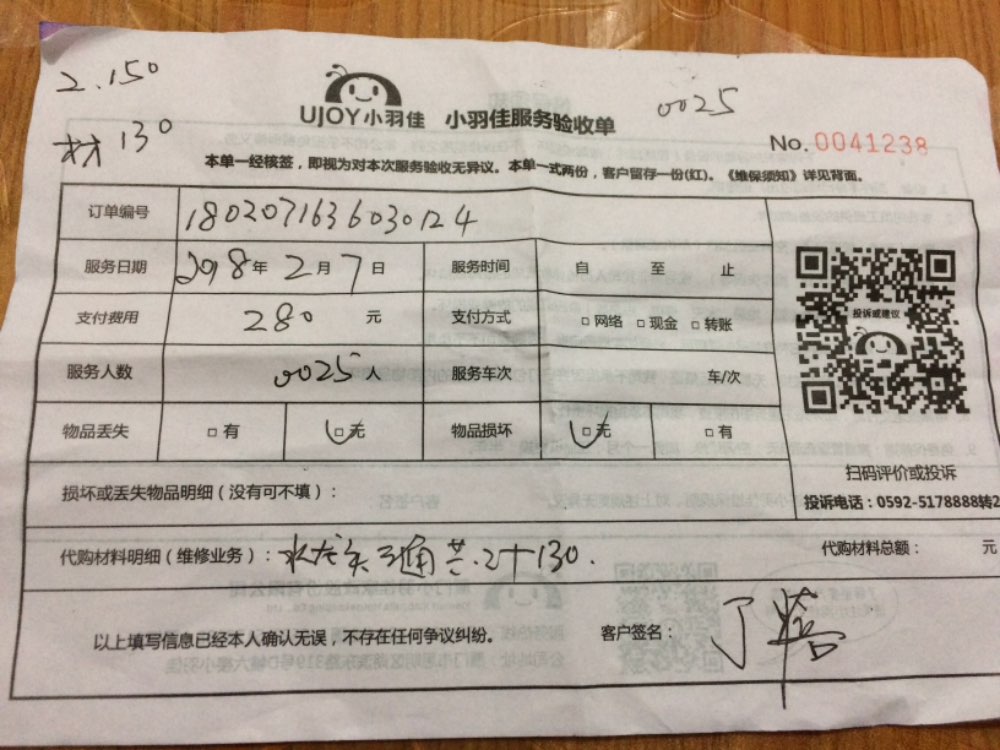 2.150
材 130
0025
UJOY小羽佳 小羽佳服务验收单
No.0041238
本单一经核签，即视为对本次服务验收无异议。本单一式两份，客户留存一份(红)。《维保须知》详见背面。
订单编号 1802071636030124
服务日期 2018年2月7日 服务时间 自 至 止
支付费用 280 元 支付方式 □网络 □现金 □转账
服务人数 0025 服务车次 车/次
物品丢失 □有 □无 物品损坏 □无 □有
投诉或建议
扫码评价或投诉
投诉电话：0592-5178888转2
损坏或丢失物品明细（没有可不填）：
代购材料明细（维修业务）：水龙头三通 2个130.
代购材料总额： 元
以上填写信息已经本人确认无误，不存在任何争议纠纷。 客户签名：